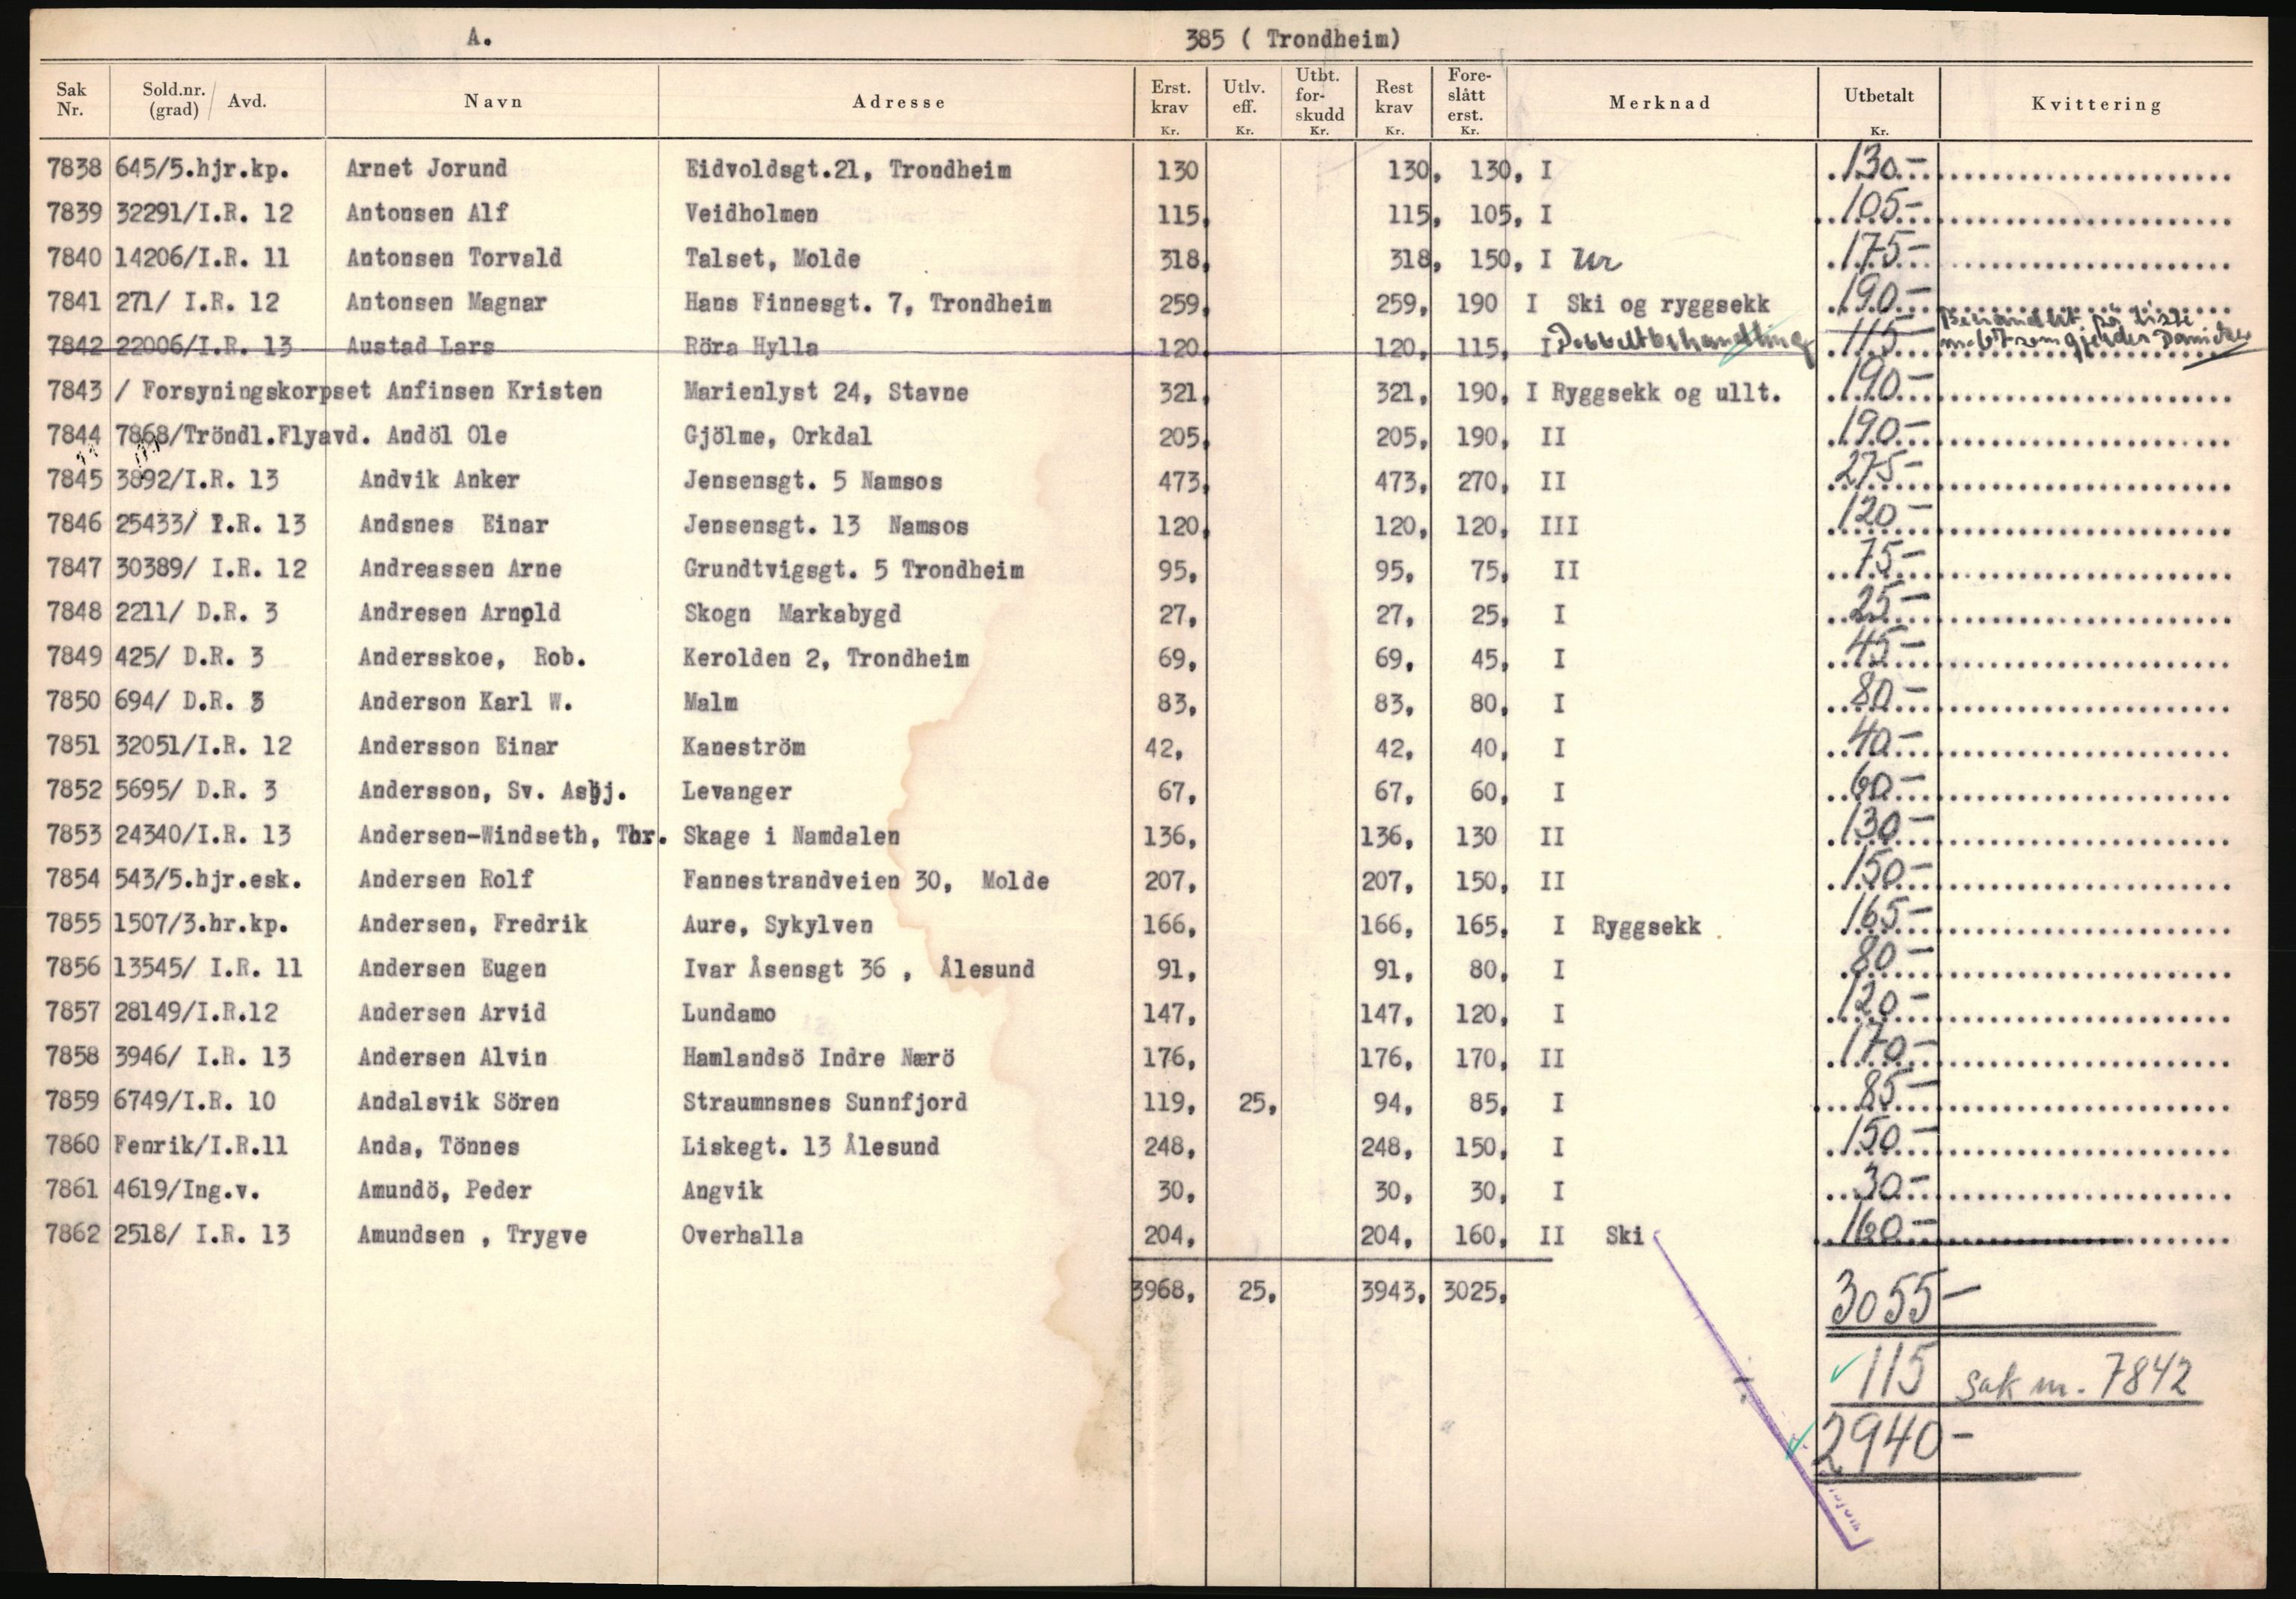 A. 385 ( Trondheim)
Sak Nr. Sold.nr. (grad) / Avd. Navn Adresse Erst. krav Kr. Utlv. eff. Kr. Utbt. for- skudd Kr. Rest krav Kr. Fore- slått erst. Kr. Merknad Utbetalt Kr. Kvittering
7838 645/5.hjr.kp. Arnet Jorund Eidvoldsgt.21, Trondheim 130 130, 130, I 130-
7839 32291/I.R. 12 Antonsen Alf Veidholmen 115, 115, 105, I 105-
7840 14206/I.R. 11 Antonsen Torvald Talset, Molde 318, 318, 150, I Ur 175-
7841 271/ I.R. 12 Antonsen Magnar Hans Finnesgt. 7, Trondheim 259, 259, 190 I Ski og ryggsekk 190-
7842 22006/I.R. 13 Austad Lars Röra Hylla 120, 120, 115, I Dobbeltbehandling 115- Behandlet på liste
7843 / Forsyningskorpset Anfinsen Kristen Marienlyst 24, Stavne 321, 321, 190, I Ryggsekk og ullt. 190-
7844 7868/Tröndl.Flyavd. Andöl Ole Gjölme, Orkdal 205, 205, 190, II 190-
7845 3892/I.R. 13 Andvik Anker Jensensgt. 5 Namsos 473, 473, 270, II 275-
7846 25433/ I.R. 13 Andsnes Einar Jensensgt. 13 Namsos 120, 120, 120, III 120-
7847 30389/ I.R. 12 Andreassen Arne Grundtvigsgt. 5 Trondheim 95, 95, 75, II 75-
7848 2211/ D.R. 3 Andresen Arnold Skogn Markabygd 27, 27, 25, I 25-
7849 425/ D.R. 3 Andersskoe, Rob. Kerolden 2, Trondheim 69, 69, 45, I 45-
7850 694/ D.R. 3 Anderson Karl W. Malm 83, 83, 80, I 80-
7851 32051/I.R. 12 Andersson Einar Kaneström 42, 42, 40, I 40-
7852 5695/ D.R. 3 Andersson, Sv. Asbj. Levanger 67, 67, 60, I 60-
7853 24340/I.R. 13 Andersen-Windseth, Thr. Skage i Namdalen 136, 136, 130 II 130-
7854 543/5.hjr.esk. Andersen Rolf Fannestrandveien 30, Molde 207, 207, 150, II 150-
7855 1507/3.hr.kp. Andersen, Fredrik Aure, Sykylven 166, 166, 165, I Ryggsekk 165-
7856 13545/ I.R. 11 Andersen Eugen Ivar Åsensgt 36 , Ålesund 91, 91, 80, I 80-
7857 28149/I.R.12 Andersen Arvid Lundamo 147, 147, 120, I 120-
7858 3946/ I.R. 13 Andersen Alvin Hamlandsö Indre Nærö 176, 176, 170, II 170-
7859 6749/I.R. 10 Andalsvik Sören Straumnsnes Sunnfjord 119, 25, 94, 85, I 85-
7860 Fenrik/I.R.11 Anda, Tönnes Liskegt. 13 Ålesund 248, 248, 150, I 150-
7861 4619/Ing.v. Amundö, Peder Angvik 30, 30, 30, I 30-
7862 2518/ I.R. 13 Amundsen , Trygve Overhalla 204, 204, 160, II Ski 160-
3968, 25, 3943, 3025, 3055-
115 sak nr. 7842
2940-